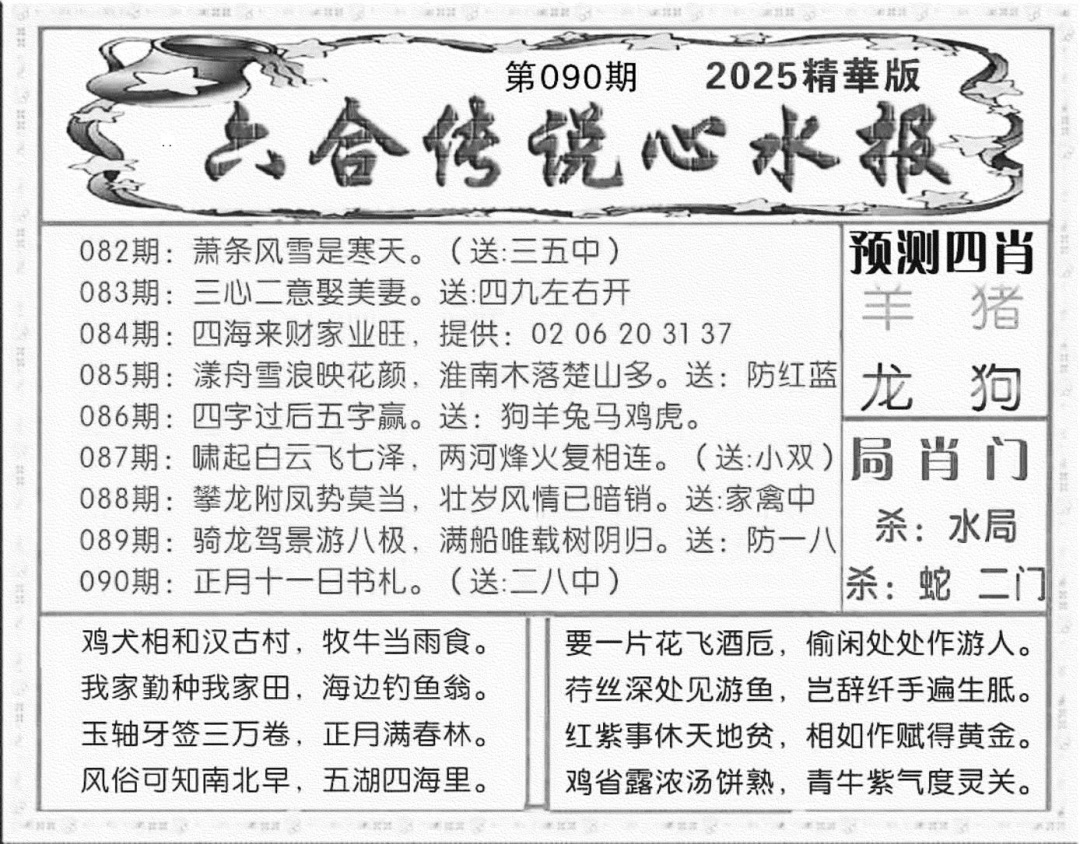 第090期 2025精華版
六合传说心水报
082期：萧条风雪是寒天。（送:三五中）
083期：三心二意娶美妻。送:四九左右开
084期：四海来财家业旺，提供：02 06 20 31 37
085期：漾舟雪浪映花颜，淮南木落楚山多。送：防红蓝
086期：四字过后五字赢。送：狗羊兔马鸡虎。
087期：啸起白云飞七泽，两河烽火复相连。（送:小双）
088期：攀龙附凤势莫当，壮岁风情已暗销。送:家禽中
089期：骑龙驾景游八极，满船唯载树阴归。送：防一八
090期：正月十一日书札。（送:二八中）
预测四肖
羊 猪
龙 狗
局肖门
杀：水局
杀：蛇 二门
鸡犬相和汉古村，牧牛当雨食。
我家勤种我家田，海边钓鱼翁。
玉轴牙签三万卷，正月满春林。
风俗可知南北早，五湖四海里。
要一片花飞酒卮，偷闲处处作游人。
荇丝深处见游鱼，岂辞纤手遍生胝。
红紫事休天地贫，相如作赋得黄金。
鸡省露浓汤饼熟，青牛紫气度灵关。